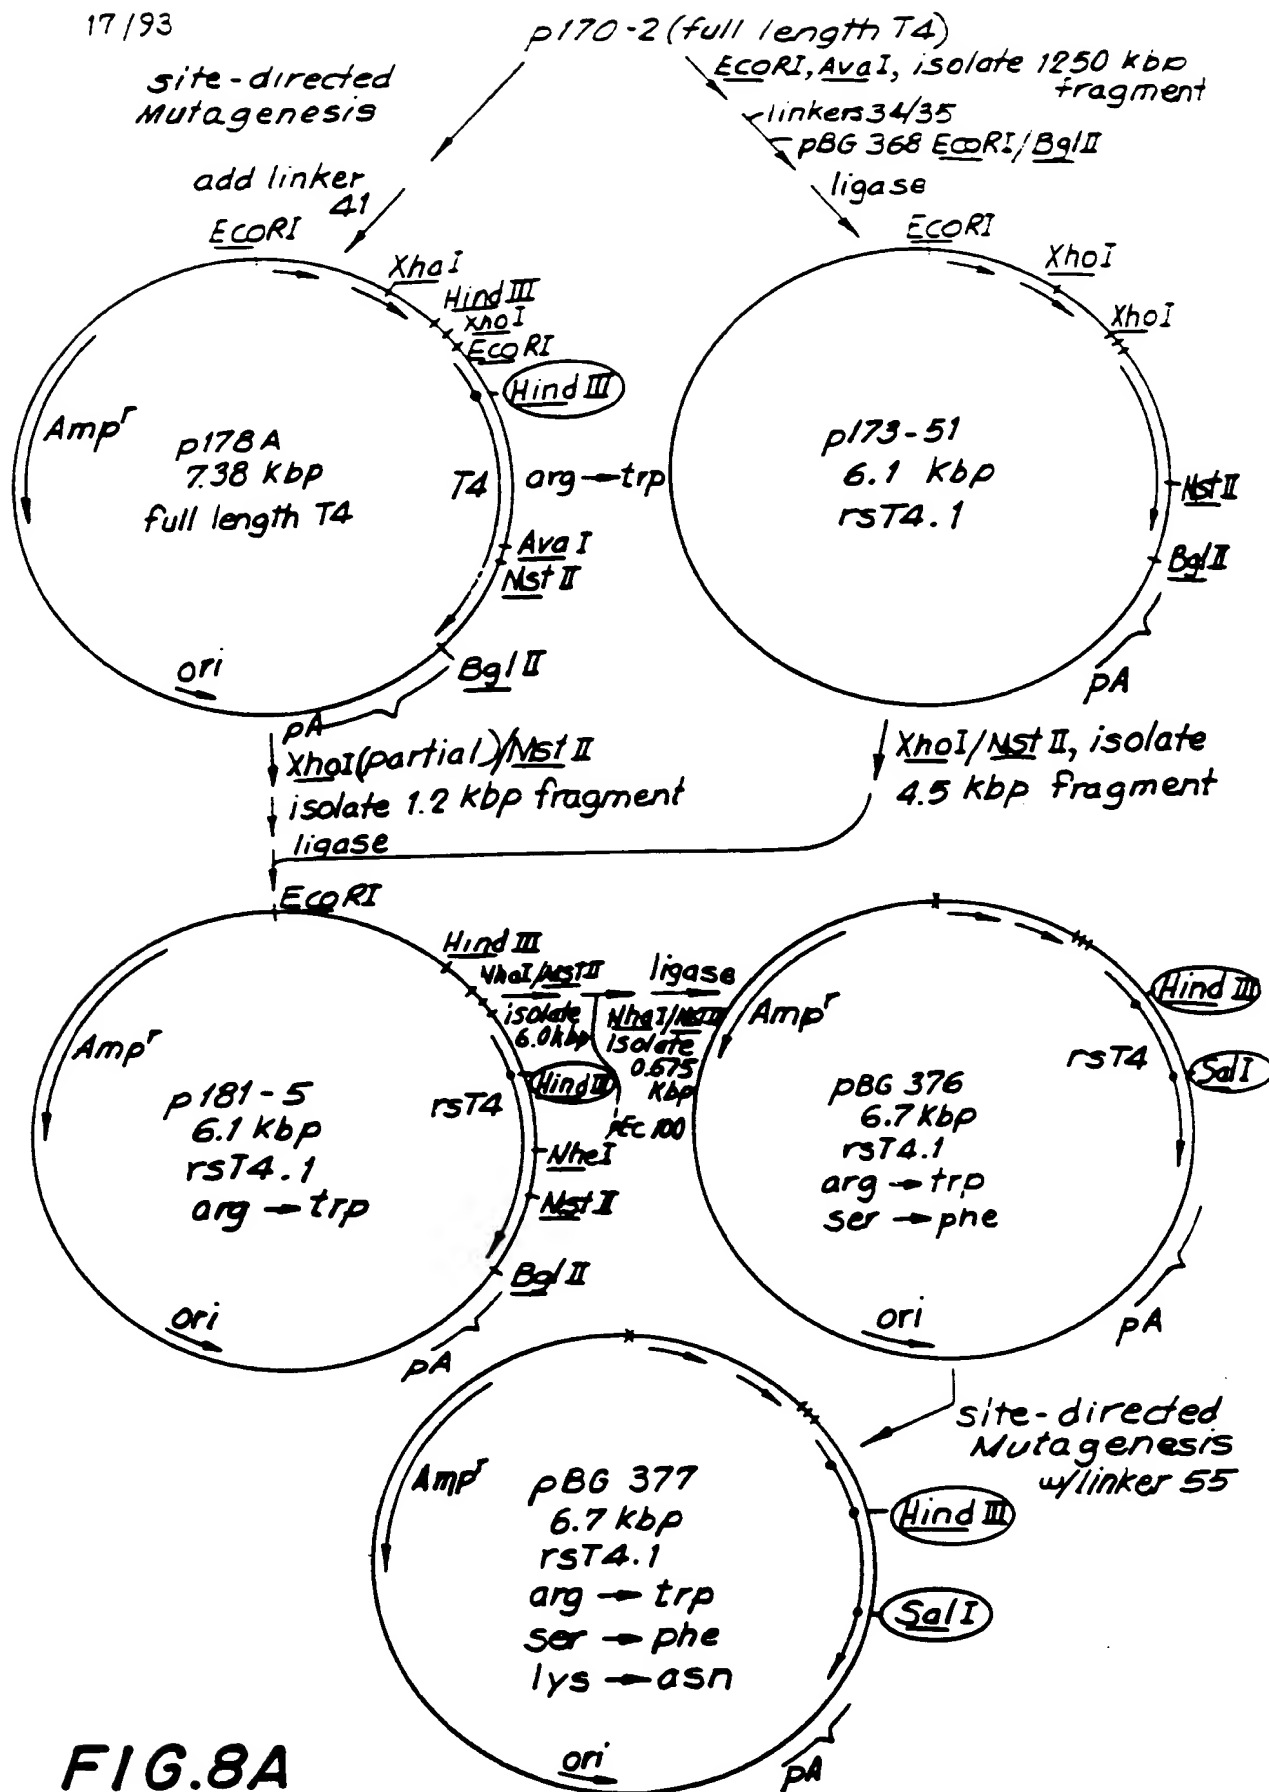 17/93
p170-2 (full length T4)
site-directed
Mutagenesis
add linker
41
EcoRI, AvaI, isolate 1250 Kbp
fragment
linkers 34/35
pBG 368 EcoRI/BglII
ligase
EcoRI
XhaI
Hind III
XhoI
EcoRI
Hind III
Ampr
p178A
7.38 Kbp
full length T4
T4
arg → trp
Ava I
Nst II
Bgl II
ori
pA
EcoRI
XhoI
XhoI
p173-51
6.1 Kbp
rsT4.1
Nst II
Bgl II
pA
XhoI(partial)/Nst II
isolate 1.2 Kbp fragment
ligase
XhoI/Nst II, isolate
4.5 Kbp fragment
EcoRI
Hind III
NhaI/NstII
isolate
6.0 Kbp
ligase
NheI/NstII
isolate
0.675
Kbp
pEc 100
Ampr
p181-5
6.1 Kbp
rsT4.1
arg → trp
rsT4
Hind III
NheI
Nst II
Bgl II
ori
pA
Ampr
pBG 376
6.7 Kbp
rsT4.1
arg → trp
ser → phe
rsT4
Hind III
Sal I
ori
pA
site-directed
Mutagenesis
w/linker 55
Ampr
pBG 377
6.7 Kbp
rsT4.1
arg → trp
ser → phe
lys → asn
Hind III
Sal I
ori
pA
FIG.8A